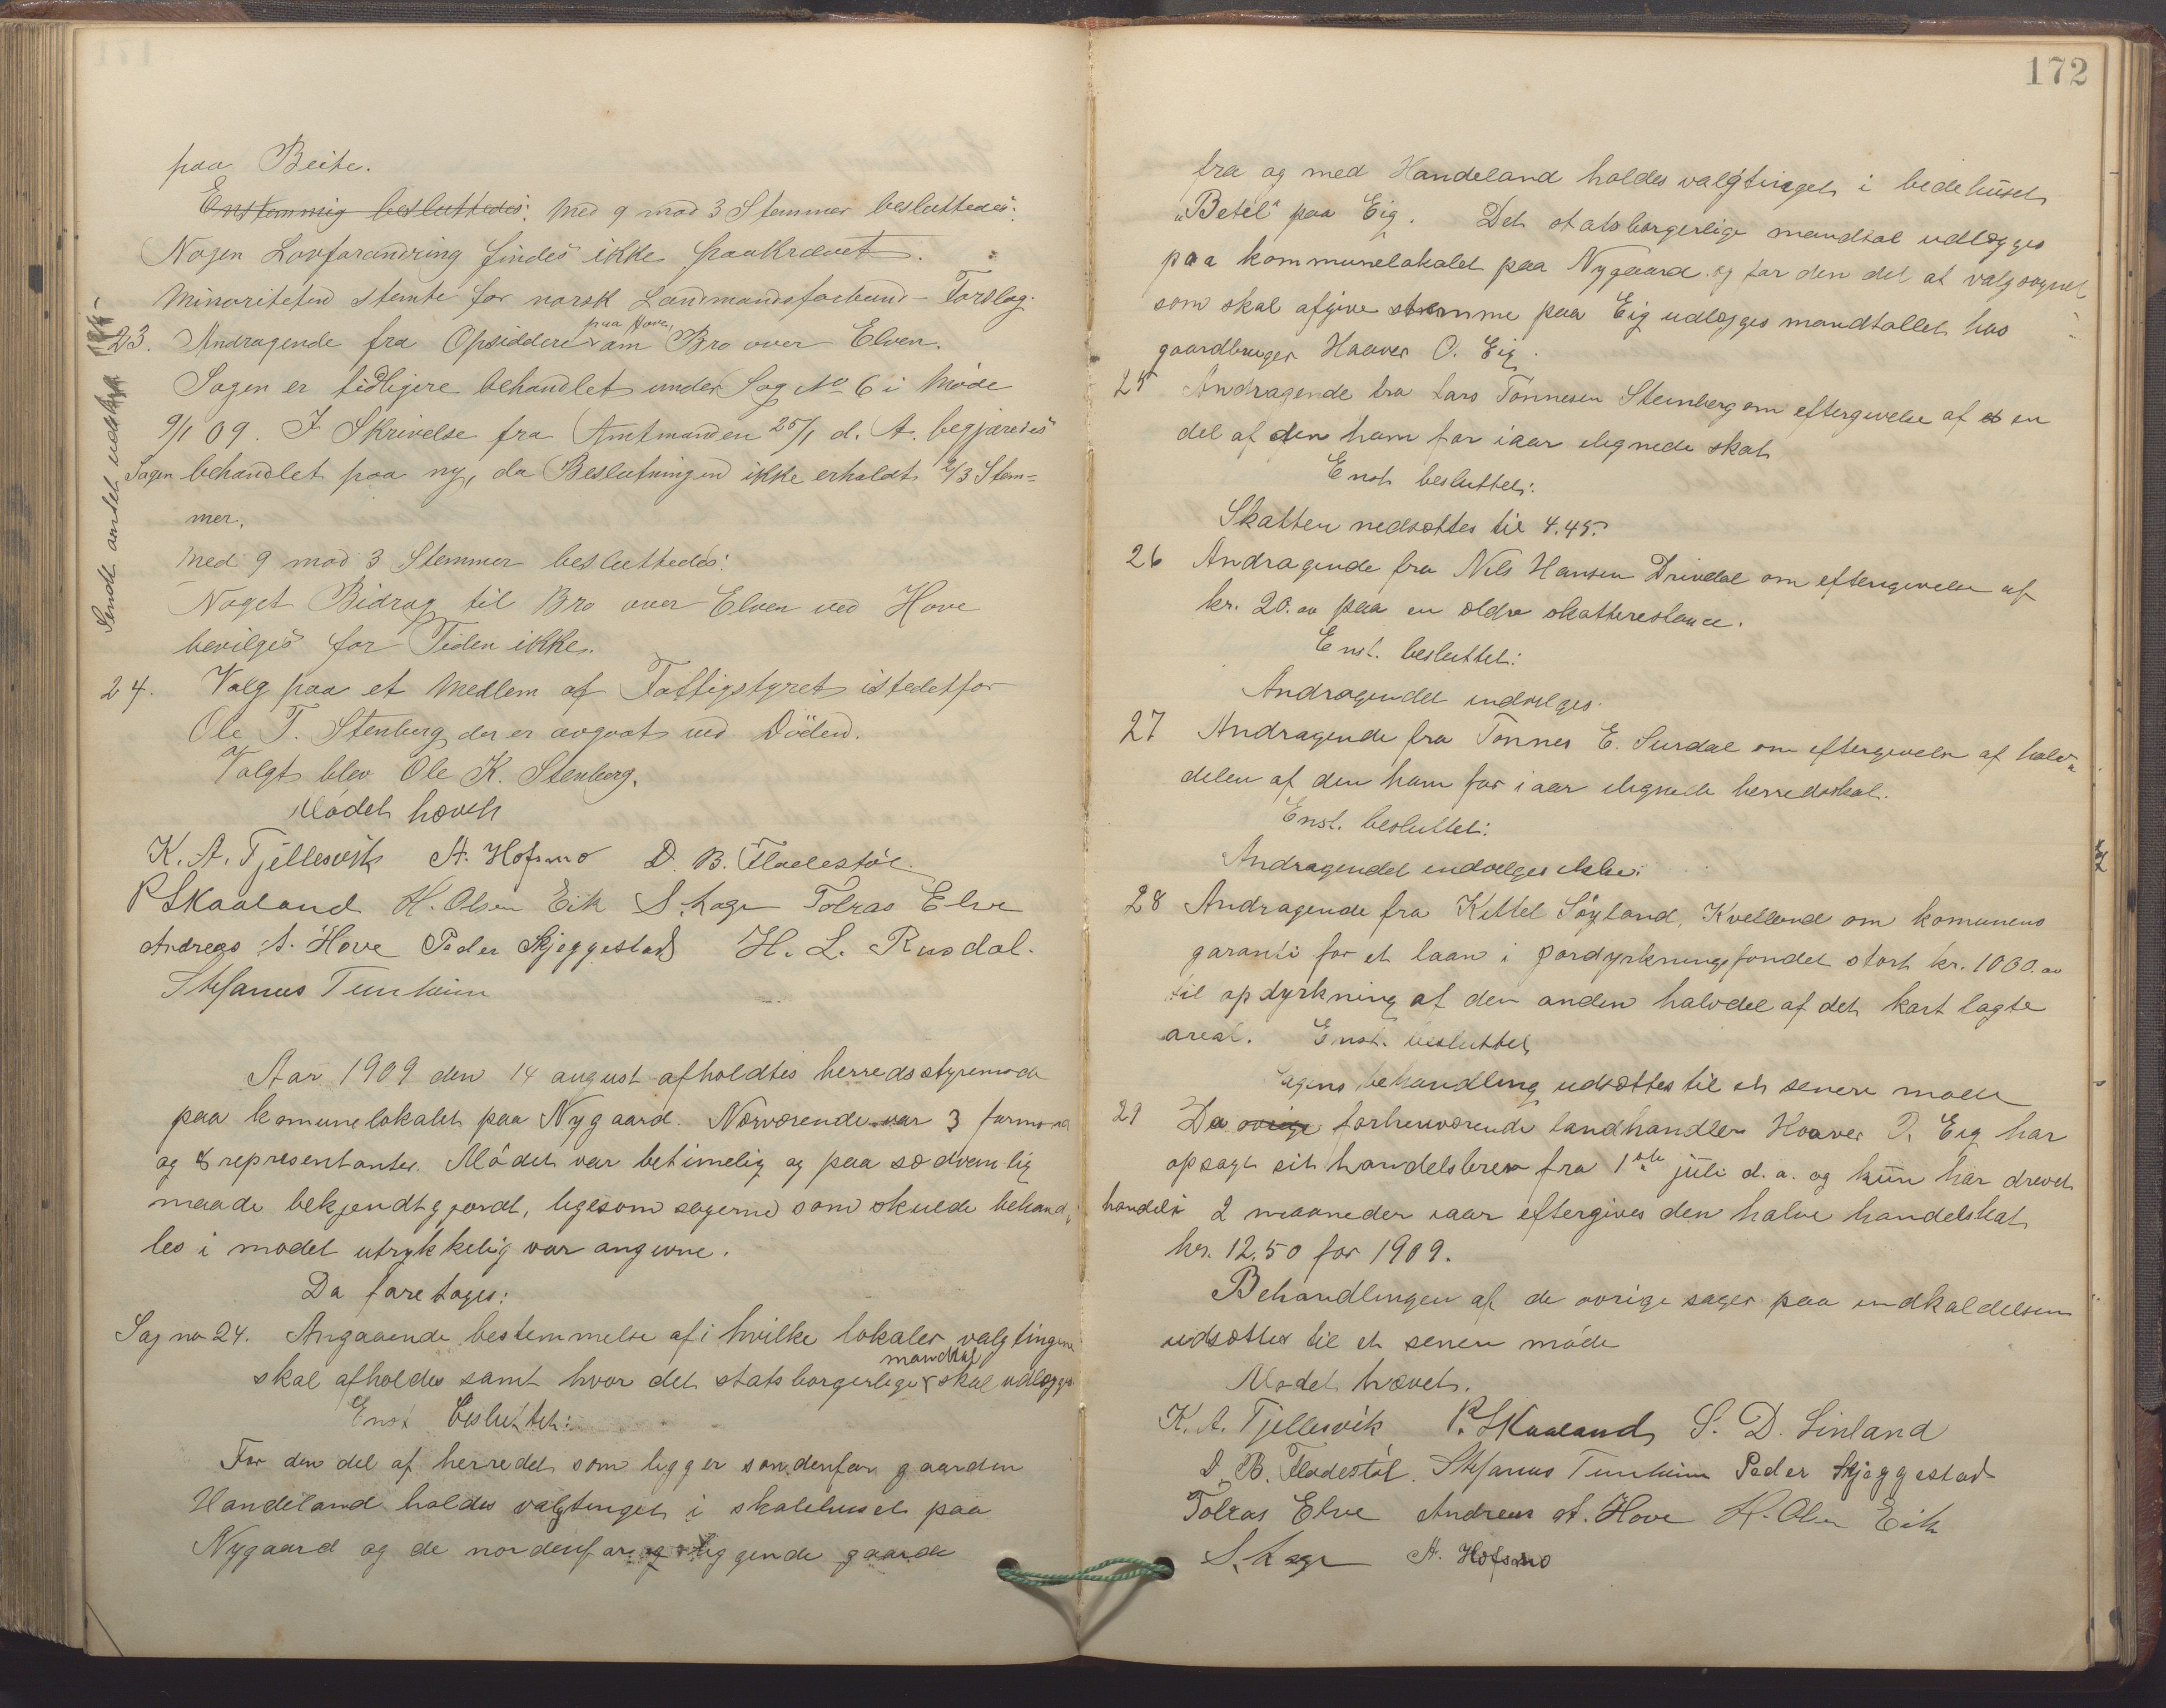 paa Beite.
Enstemmig besluttedes: Med 9 mod 3 Stemmer besluttedes:
Nogen Lovforandring findes ikke paakrævet.
Minoriteten stemte for norsk Landmandsforbund - Forslag.
23. Andragende fra Opsiddere paa Hove om Bro over Elven.
Sagen er tidligere behandlet under Sag No 6 i Møde
9/1 09. I Skrivelse fra Amtmanden 25/1 d. A. begjæredes
Sagen behandlet paa ny, da Beslutningen ikke erholdt 2/3 Stem=
mer.
Med 9 mod 3 Stemmer besluttedes:
Noget Bidrag til Bro over Elven ved Hove
bevilges for Tiden ikke.
24. Valg paa et Medlem af Fattigstyret istedetfor
Ole T. Stenberg, der er avgaat ved Döden.
Valgt blev Ole K. Stenberg.
Mødet hævet
K. A. Tjellesvik A. Hofsmo D. B. Fladestøl
P Skaaland H. Olsen Eik S. Lage Tolras Elve
Andreas A. Hove Peder Skjeggestad H. L. Rusdal.
Stefanus Tunheim
Aar 1909 den 14 august afholdtes herredsstyremøde
paa komunelokalet paa Nygaard. Nærværende var 3 formænd
og 8 representanter. Mödet var betimelig og paa sædvanlig
maade bekjendtgjordt, ligesom sagerne som skulde behand„
les i mødet utrykkelig var angivne.
Da foretoges:
Sag no 24. Angaaende bestemmelse af i hvilke lokaler valgtingene
skal afholdes samt hvor det statsborgerlige mandtal skal udlægges
Enst besluttet:
For den del af herredet som ligger søndenfor gaarden
Handeland holdes valgtinget i skolehuset paa
Nygaard og de nordenfor og liggende gaarde
172
fra og med Handeland holdes valgtinget i bedehuset
„Betel“ paa Eig. Det statsborgerlige mandtal udlægges
paa kommunelokalet paa Nygaard og for den del af valgsognet
som skal afgive stemme paa Eig udlægges mandtallet hos
gaardbruger Haaver O. Eig.
25 Andragende fra Lars Tønnesen Stenberg om eftergivelse af en
del af den ham for iaar ilignede skat
Enst besluttet:
Skatten nedsættes til 4.45.
26 Andragende fra Nils Hansen Drivdal om eftergivelse af
kr. 20.00 paa en ældre skatterestance.
Enst. besluttet:
Andragendet indvilges.
27 Andragende fra Tønnes E. Surdal om eftergivelse af halv„
delen af den ham for iaar ilignede herredsskat.
Enst. besluttet:
Andragendet indvilges ikke.
28 Andragende fra Kittel Söyland, Kvelland om komunens
garanti for et laan i jordyrkningsfondet stort kr. 1000.00
til opdyrkning af den anden halvdel af det kart lagte
areal. Enst. besluttet
Sagens behandling udsættes til et senere møde
29 Da ovrige forhenværende landhandler Haaver O. Eig har
opsagt sit handelsbrev fra 1ste juli d. a. og kun har drevet
handel i 2 maaneder iaar eftergives den halve handelskat
kr. 12.50 for 1909.
Behandlingen af de øvrige sager paa indkaldelsen
udsættes til et senere møde
Mødet hævet.
K. A. Tjellesvik P. Skaaland S. D. Linland
D. B. Fladestøl. Stefanus Tunheim Peder Skjeggestad
Tolras Elve Andreas A. Hove H. Olsen Eik
S. Lage A. Hofsmo